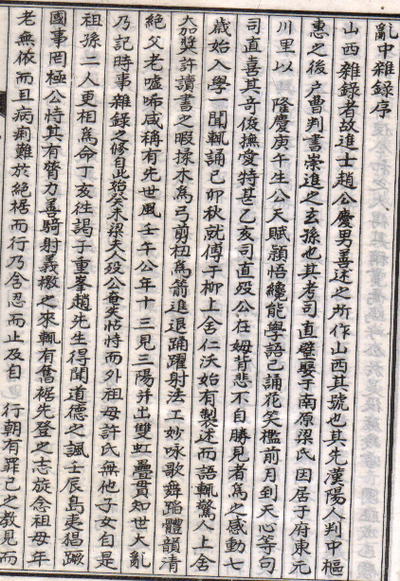 亂中雜錄序
山西雜錄者故進士趙公慶男善述之所作山西其號也其先漢陽人判中樞
惠之後戶曹判書崇進之玄孫也其考司直璧娶于南原梁氏因居于府東元
川里以隆慶庚午生公天賦穎悟纔能學語已誦花笑檻前月到天心等句
司直喜其奇俊撫愛特甚乙亥司直歿公在姆背悲不自勝見者爲之感動七
歲始入學一聞輒誦己卯秋就傅于柳上舍仁沃始有製述而語輒驚人上舍
加奬許讀書之暇揉木爲弓剪杻爲箭進退踊躍射法工妙咏歌舞蹈體韻清
絶父老噓唏咸稱有先世風壬午公年十三見三陽并出雙虹疊貫知世大亂
乃記時事雜錄之修自此始癸未梁夫人歿公奄失怙恃而外祖母許氏無他子女自是
祖孫二人更相爲命丁亥徃謁子重峯趙先生得聞道德之諷壬辰島夷猖蹶
國事罔極公恃其有膂力善騎射義檄之來輒有奮裾先登之志旋念祖母年
老無依而且病痢難於絶裾而行乃含忍而止及自行朝有罪己之敎見而